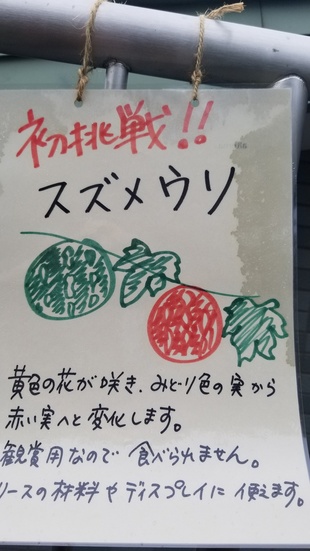 初挑戦!!
スズメウリ
黄色の花が咲き、みどり色の実から
赤い実へと変化します。
観賞用なので 食べられません。
リースの材料やディスプレイに使えます。